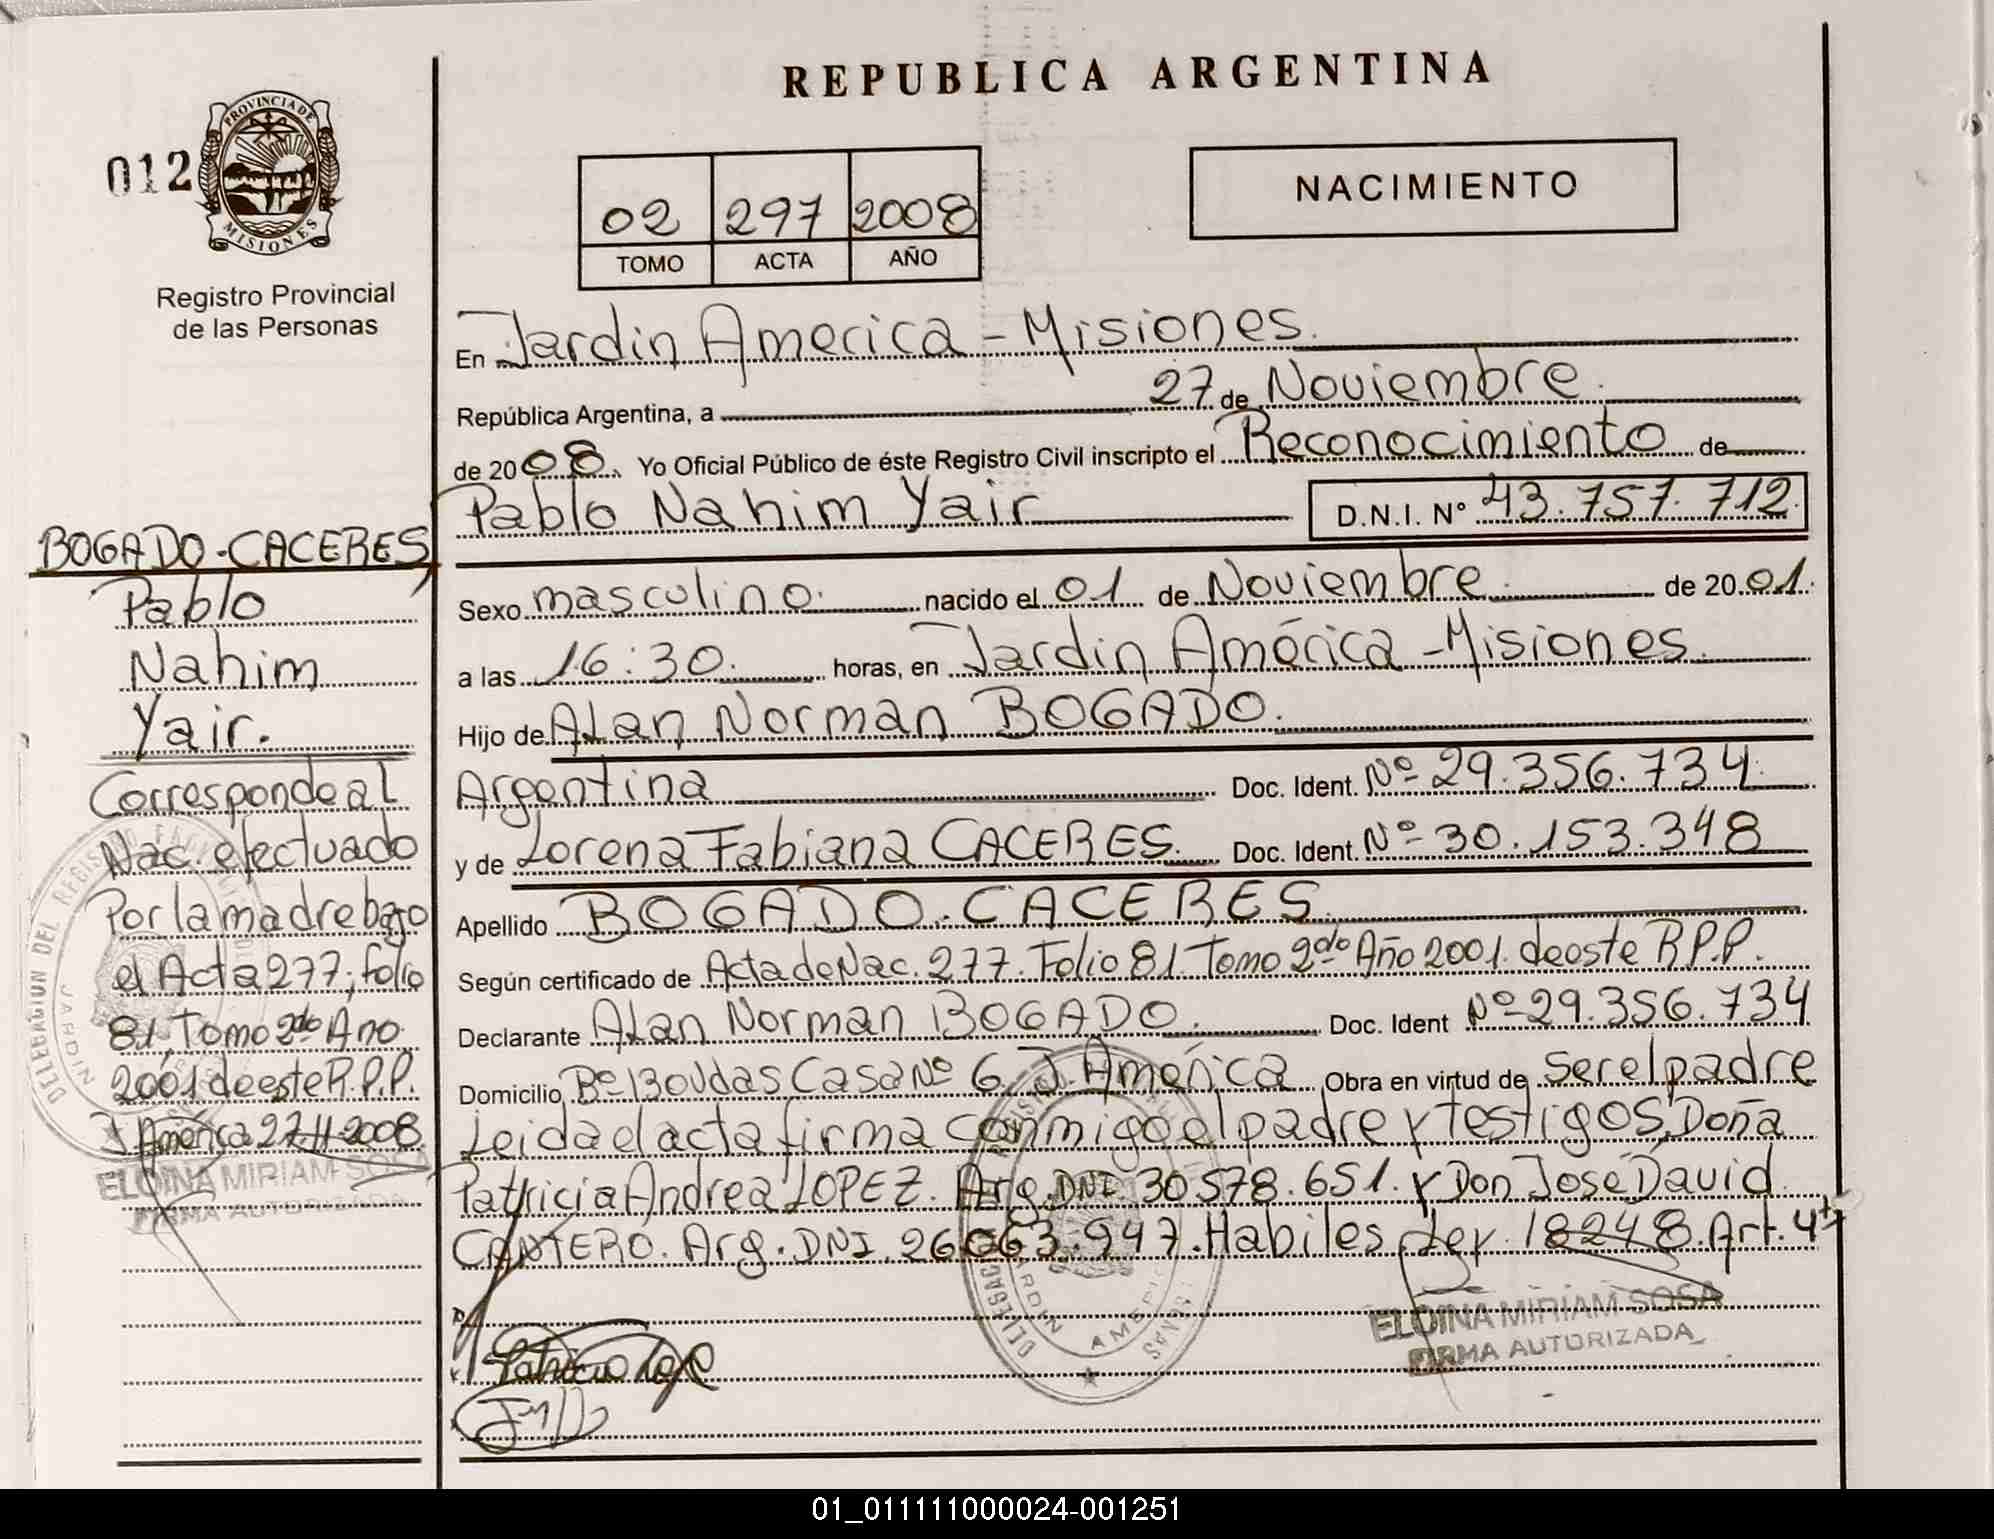 REPUBLICA ARGENTINA
012
PROVINCIA DE
MISIONES
Registro Provincial
de las Personas
02 297 2008
TOMO ACTA AÑO
NACIMIENTO
En Jardin America - Misiones.
República Argentina, a 27 de Noviembre.
de 2008. Yo Oficial Público de éste Registro Civil inscripto el Reconocimiento de
Pablo Nahim Yair D.N.I. Nº 43.757.712.
Sexo masculino. nacido el 01 de Noviembre. de 2001.
a las 16:30. horas, en Jardin América - Misiones.
Hijo de Alan Norman BOGADO.
Argentina Doc. Ident. Nº 29.356.734.
y de Lorena Fabiana CACERES. Doc. Ident. Nº 30.153.348
Apellido BOGADO-CACERES.
Según certificado de Acta de Nac. 277. Folio 81. Tomo 2do Año 2001. de este R.P.P.
Declarante Alan Norman BOGADO. Doc. Ident Nº 29.356.734
Domicilio Bº Boudas Casa Nº 6. J. América Obra en virtud de ser el padre
Leida el acta firma conmigo el padre y testigos, Doña
Patricia Andrea LOPEZ. Arg. DNI. 30578.651. y Don José David
CANTERO. Arg. DNI. 26063.947. Habiles Ley 18248. Art. 4to
ELOINA MIRIAM SOSA
FIRMA AUTORIZADA
BOGADO-CACERES,
Pablo
Nahim
Yair.
Corresponde al
Nac. efectuado
Por la madre bajo
el Acta 277, folio
81, Tomo 2do Ano
2001 de este R.P.P.
J América 27-11-2008.
ELOINA MIRIAM SOSA
FIRMA AUTORIZADA
01_011111000024-001251